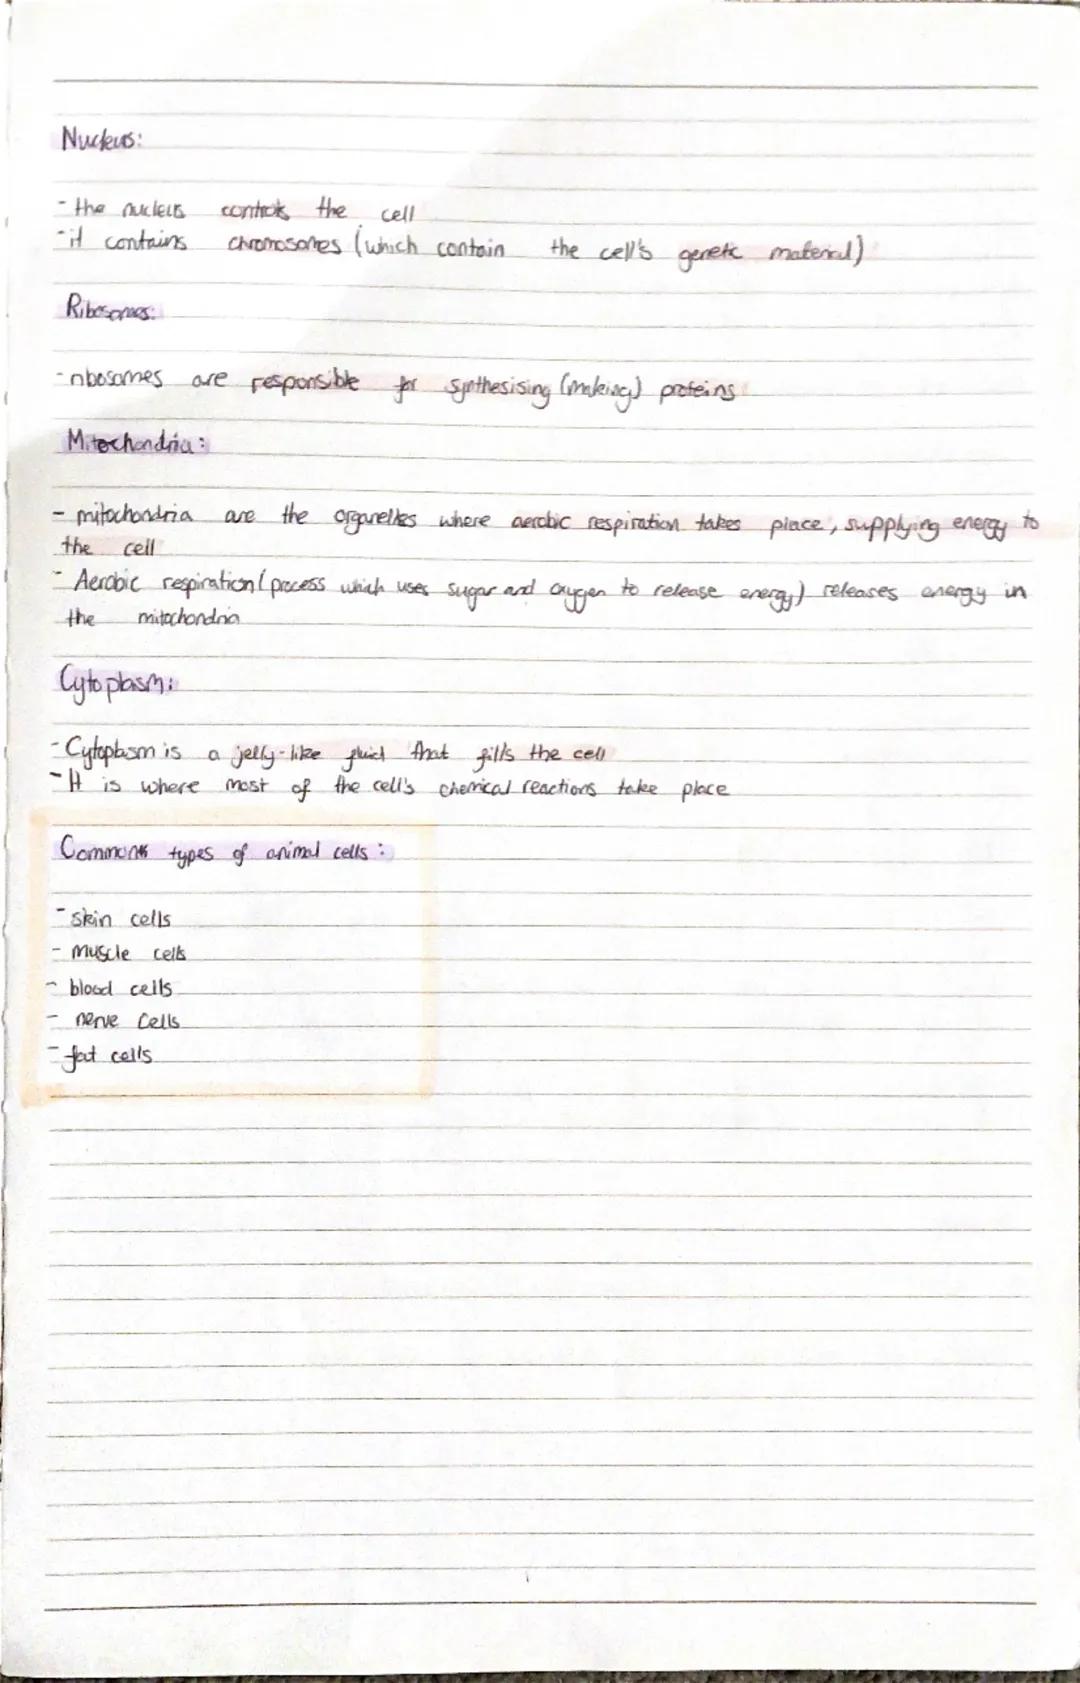 Nucleus:
- the nucleus controls the cell
- it contains chromosomes (which contain the cell's genetic material)
Ribosomes:
- ribosomes are responsible for synthesising (making) proteins
Mitochondria:
- mitochondria are the organelles where aerobic respiration takes place, supplying energy to
the cell
- Aerobic respiration (process which uses sugar and oxygen to release energy) releases energy in
the mitochondria
Cytoplasm:
- Cytoplasm is a jelly-like fluid that fills the cell
- It is where most of the cell's chemical reactions take place
Common types of animal cells:
- skin cells
- muscle cells
- blood cells
- nerve cells
- fat cells